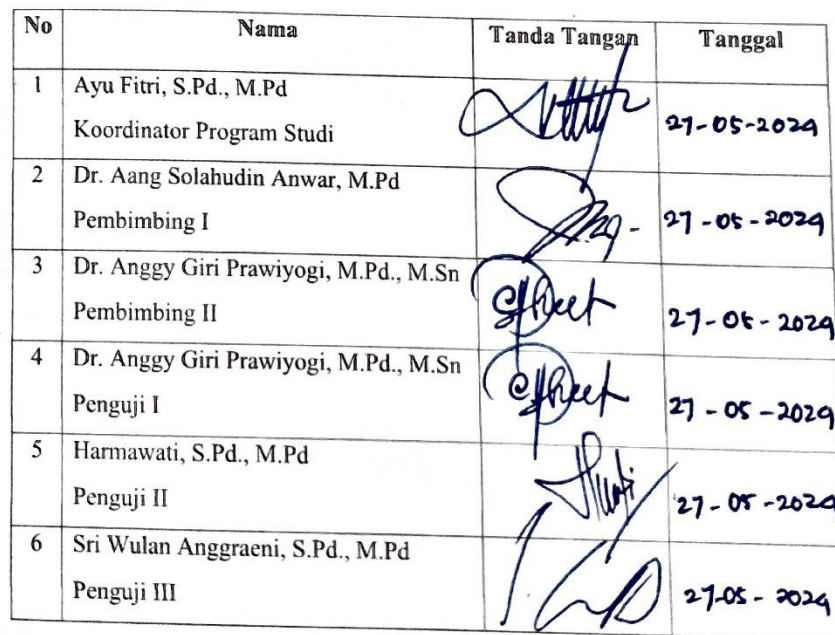 No Nama Tanda Tangan Tanggal
1 Ayu Fitri, S.Pd., M.Pd
Koordinator Program Studi 27-05-2024
2 Dr. Aang Solahudin Anwar, M.Pd
Pembimbing I 27-05-2024
3 Dr. Anggy Giri Prawiyogi, M.Pd., M.Sn
Pembimbing II 27-05-2024
4 Dr. Anggy Giri Prawiyogi, M.Pd., M.Sn
Penguji I 27-05-2024
5 Harmawati, S.Pd., M.Pd
Penguji II 27-05-2024
6 Sri Wulan Anggraeni, S.Pd., M.Pd
Penguji III 27-05-2024